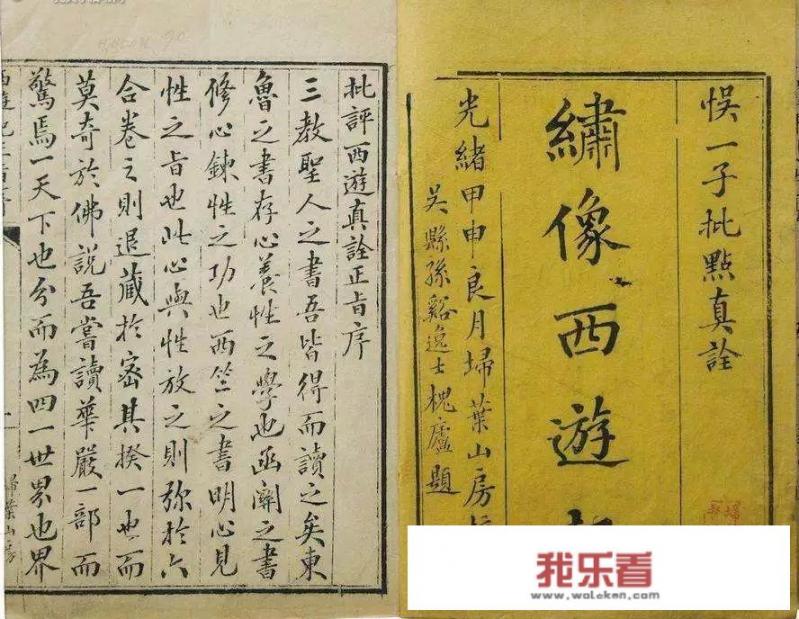 悞一子批點真詮
繡像西遊
光緒甲申良月埽葉山房
吴縣孫谿逸士槐廬題
批評西遊真詮正旨序
三教聖人之書吾皆得而讀之矣東
魯之書存心養性之學也函關之書
修心鍊性之功也西竺之書明心見
性之旨也此心與性放之則弥於六
合卷之則退藏於密其揆一也而
莫奇於佛說吾嘗讀華嚴一部而
驚焉一天下也分而為四一世界也界
埽葉山房
我乐看
www.woleken.com